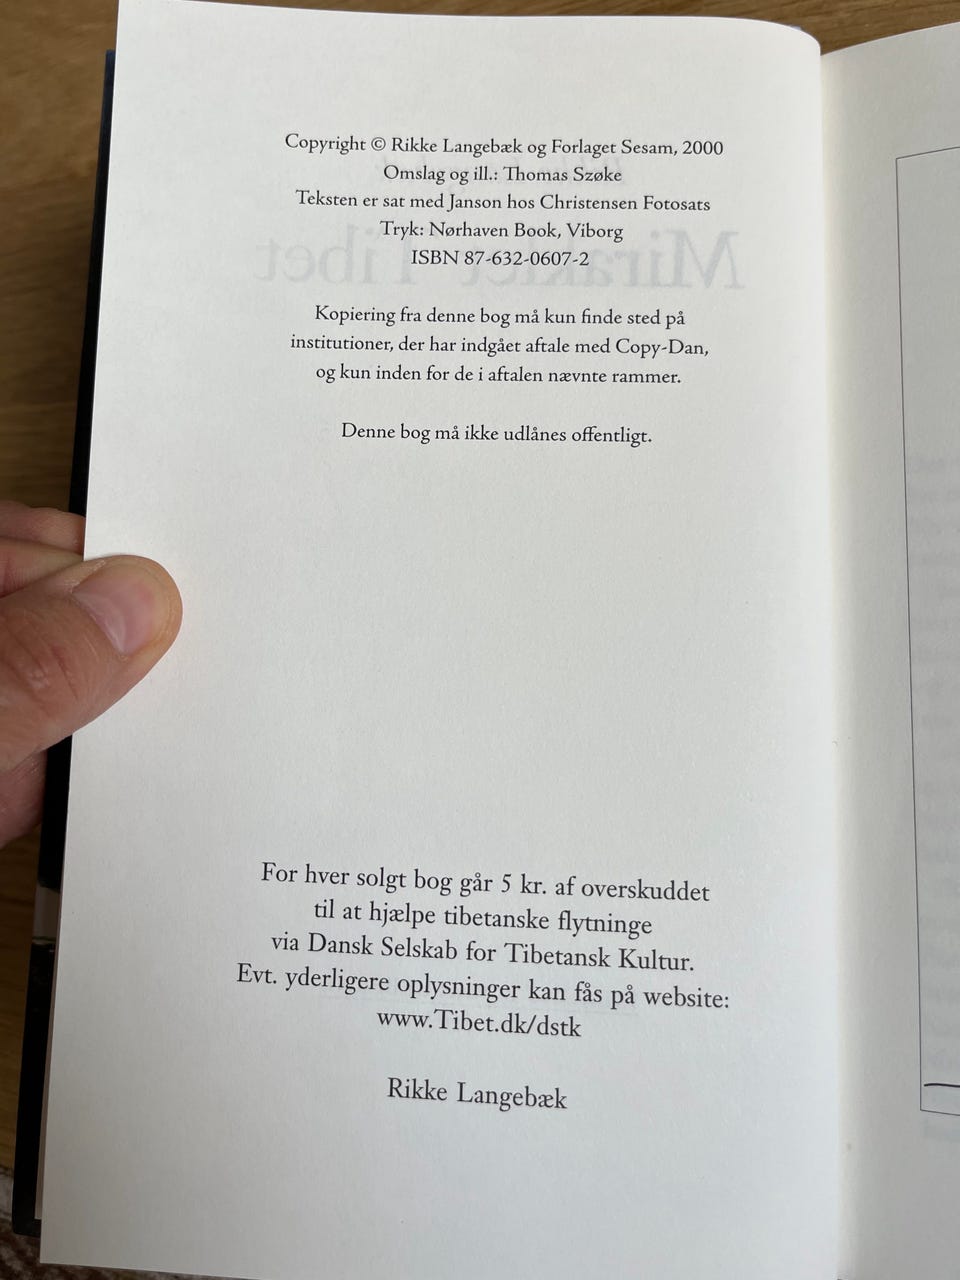 Copyright © Rikke Langebæk og Forlaget Sesam, 2000
Omslag og ill.: Thomas Szøke
Teksten er sat med Janson hos Christensen Fotosats
Tryk: Nørhaven Book, Viborg
ISBN 87-632-0607-2
Kopiering fra denne bog må kun finde sted på
institutioner, der har indgået aftale med Copy-Dan,
og kun inden for de i aftalen nævnte rammer.
Denne bog må ikke udlånes offentligt.
For hver solgt bog går 5 kr. af overskuddet
til at hjælpe tibetanske flytninge
via Dansk Selskab for Tibetansk Kultur.
Evt. yderligere oplysninger kan fås på website:
www.Tibet.dk/dstk
Rikke Langebæk